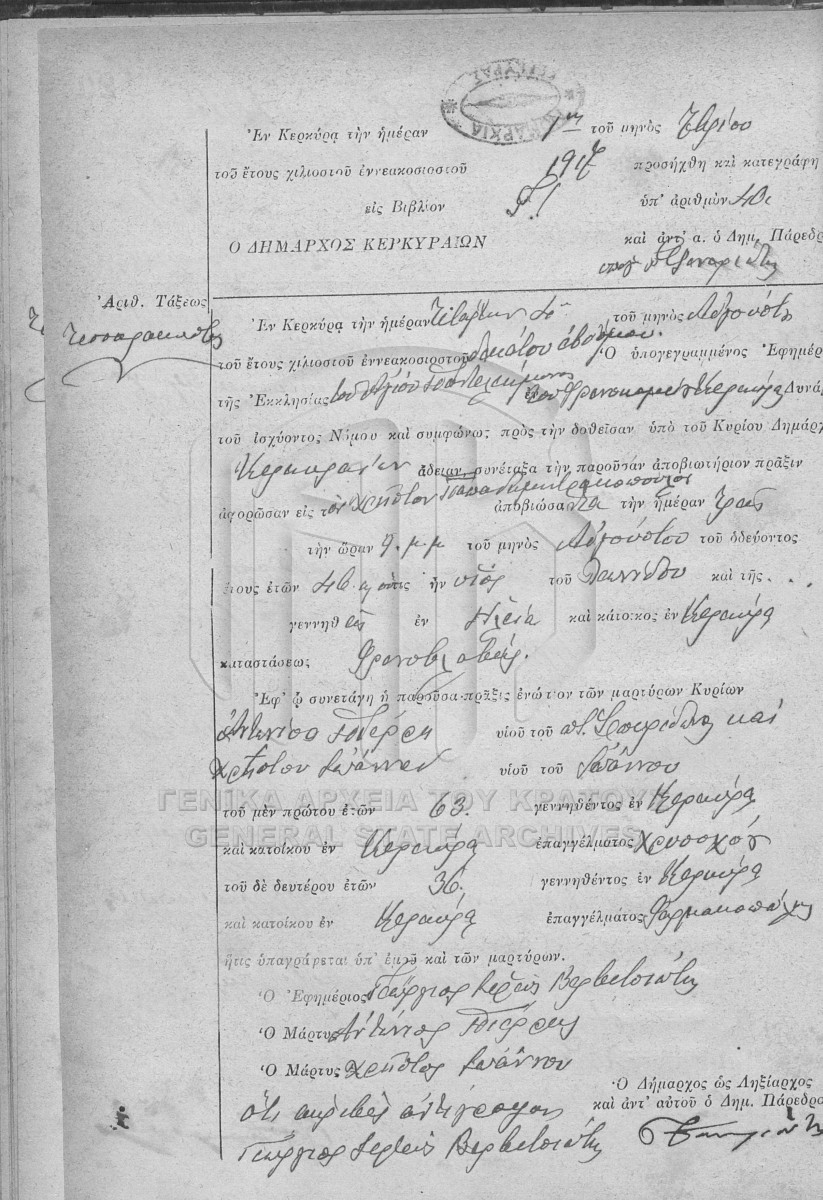 Ἐν Κερκύρᾳ τὴν ἡμέραν 1ην τοῦ μηνὸς
τοῦ ἔτους χιλιοστοῦ ἐννεακοσιοστοῦ 1917 προσήχθη καὶ κατεγράφη
εἰς Βιβλίον ὑπ' ἀριθμὸν
Ο ΔΗΜΑΡΧΟΣ ΚΕΡΚΥΡΑΙΩΝ καὶ ἀντ' α. ὁ Δημ. Πάρεδρο
Ἀριθ. Τάξεως
Ἐν Κερκύρᾳ τὴν ἡμέραν τοῦ μηνὸς Αὐγούστου
τοῦ ἔτους χιλιοστοῦ ἐννεακοσιοστοῦ δεκάτου ἑβδόμου Ὁ ὑπογεγραμμένος Ἐφημέρ
τῆς Ἐκκλησίας τοῦ Ἁγίου Παντελεήμονος τοῦ Φρενοκομείου Κερκύρας Δυνάμ
τοῦ ἰσχύοντος Νόμου καὶ συμφώνως πρὸς τὴν δοθεῖσαν ὑπὸ τοῦ Κυρίου Δημάρχ
Κερκυραίων ἄδειαν, συνέταξα τὴν παροῦσαν ἀποβιωτήριον πρᾶξιν
ἀφορῶσαν εἰς τὸν Χρῆστον Παπαδημητρακόπουλον ἀποβιώσαντα τὴν ἡμέραν
τὴν ὥραν 9. μ.μ τοῦ μηνὸς Αὐγούστου τοῦ ὁδεύοντος
ἔτους ἐτῶν ἦν υἱὸς τοῦ καὶ τῆς . . .
γεννηθεὶς ἐν καὶ κάτοικος ἐν Κερκύρᾳ
καταστάσεως
Ἐφ' ᾧ συνετάγη ἡ παροῦσα πρᾶξις ἐνώπιον τῶν μαρτύρων Κυρίων
Ἀντωνίου Πιέρρη υἱοῦ τοῦ π. Σπυρίδωνος καὶ
Χρήστου Ἰωάννου υἱοῦ τοῦ Ἰωάννου
ΓΕΝΙΚΑ ΑΡΧΕΙΑ ΤΟΥ ΚΡΑΤΟΥΣ
τοῦ μὲν πρώτου ἐτῶν 63. γεννηθέντος ἐν Κερκύρᾳ
GENERAL STATE ARCHIVES
καὶ κατοίκου ἐν Κερκύρᾳ ἐπαγγέλματος Χρυσοχόου
τοῦ δὲ δευτέρου ἐτῶν 36. γεννηθέντος ἐν Κερκύρᾳ
καὶ κατοίκου ἐν Κερκύρᾳ ἐπαγγέλματος
ἥτις ὑπογράφεται ὑπ' ἐμοῦ καὶ τῶν μαρτύρων.
Ὁ Ἐφημέριος Γεώργιος Ἱερεὺς Βερβιτσιώτης
Ὁ Μάρτυς Ἀντώνιος Πιέρρης
Ὁ Μάρτυς Χρῆστος Ἰωάννου
Ὁ Δήμαρχος ὡς Ληξίαρχος
ὅτι ἀκριβὲς ἀντίγραφον καὶ ἀντ' αὐτοῦ ὁ Δημ. Πάρεδρο
Γεώργιος Ἱερεὺς Βερβιτσιώτης